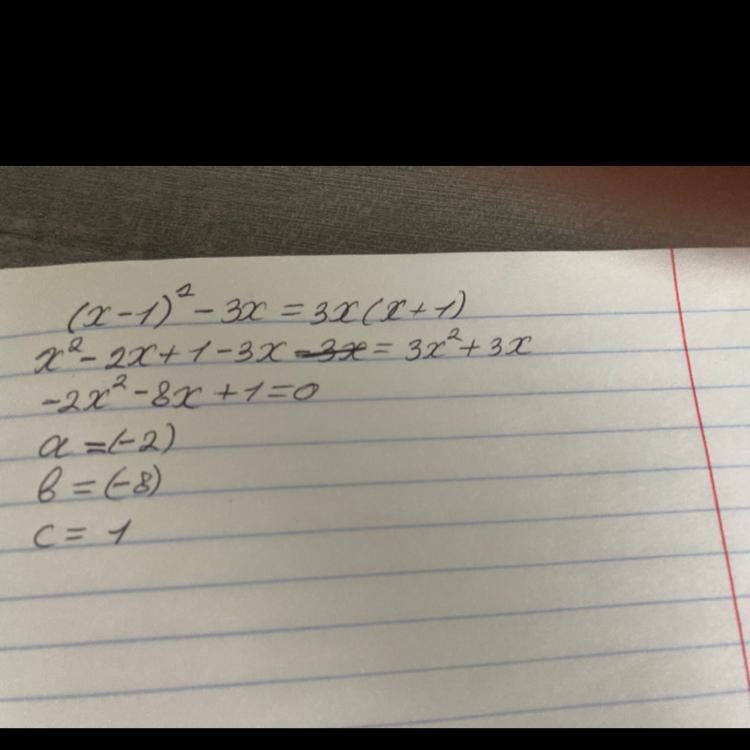 (x-1)² - 3x = 3x(x+1)
x² - 2x + 1 - 3x - 3x = 3x² + 3x
-2x² - 8x + 1 = 0
a = (-2)
b = (-8)
c = 1